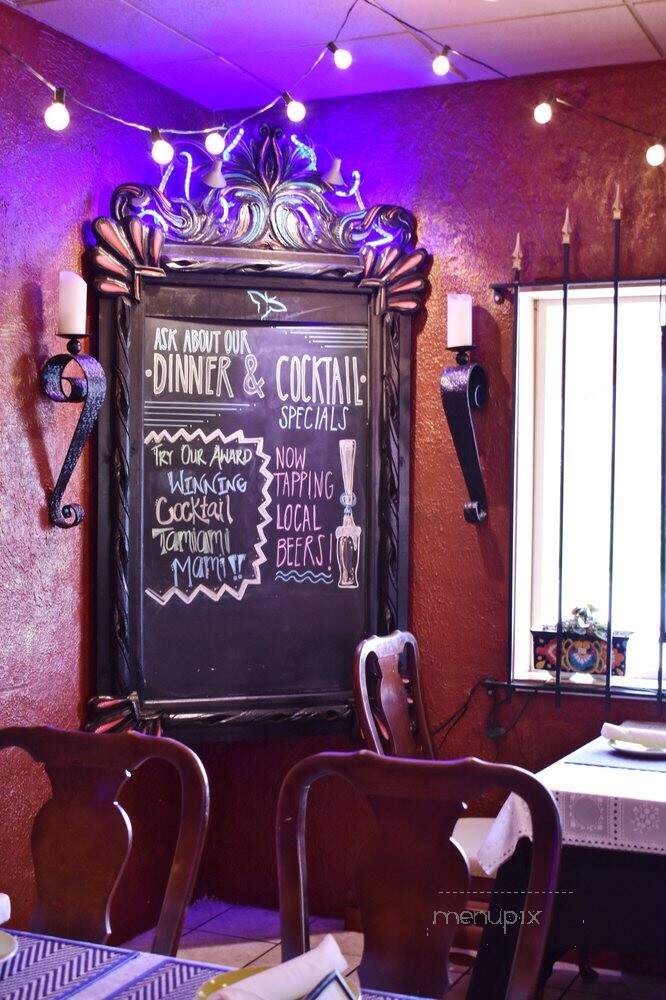 ASK ABOUT OUR
DINNER & COCKTAIL
SPECIALS
TRY OUR AWARD
WINNING
Cocktail
Tamiami
Mami!!
NOW
TAPPING
LOCAL
BEERS!
menupix